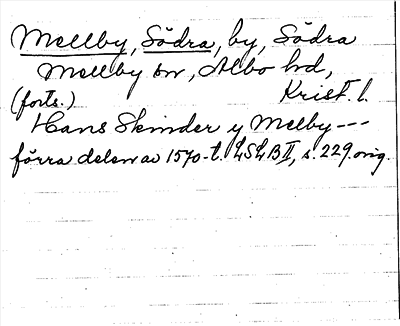 Mellby, Södra, by, Södra
Mellby sn, Albo hd,
(forts.) Krist. l.
Hans Skinder y Melby ---
förra delen av 1570-t. LSLB II, s. 229. orig.